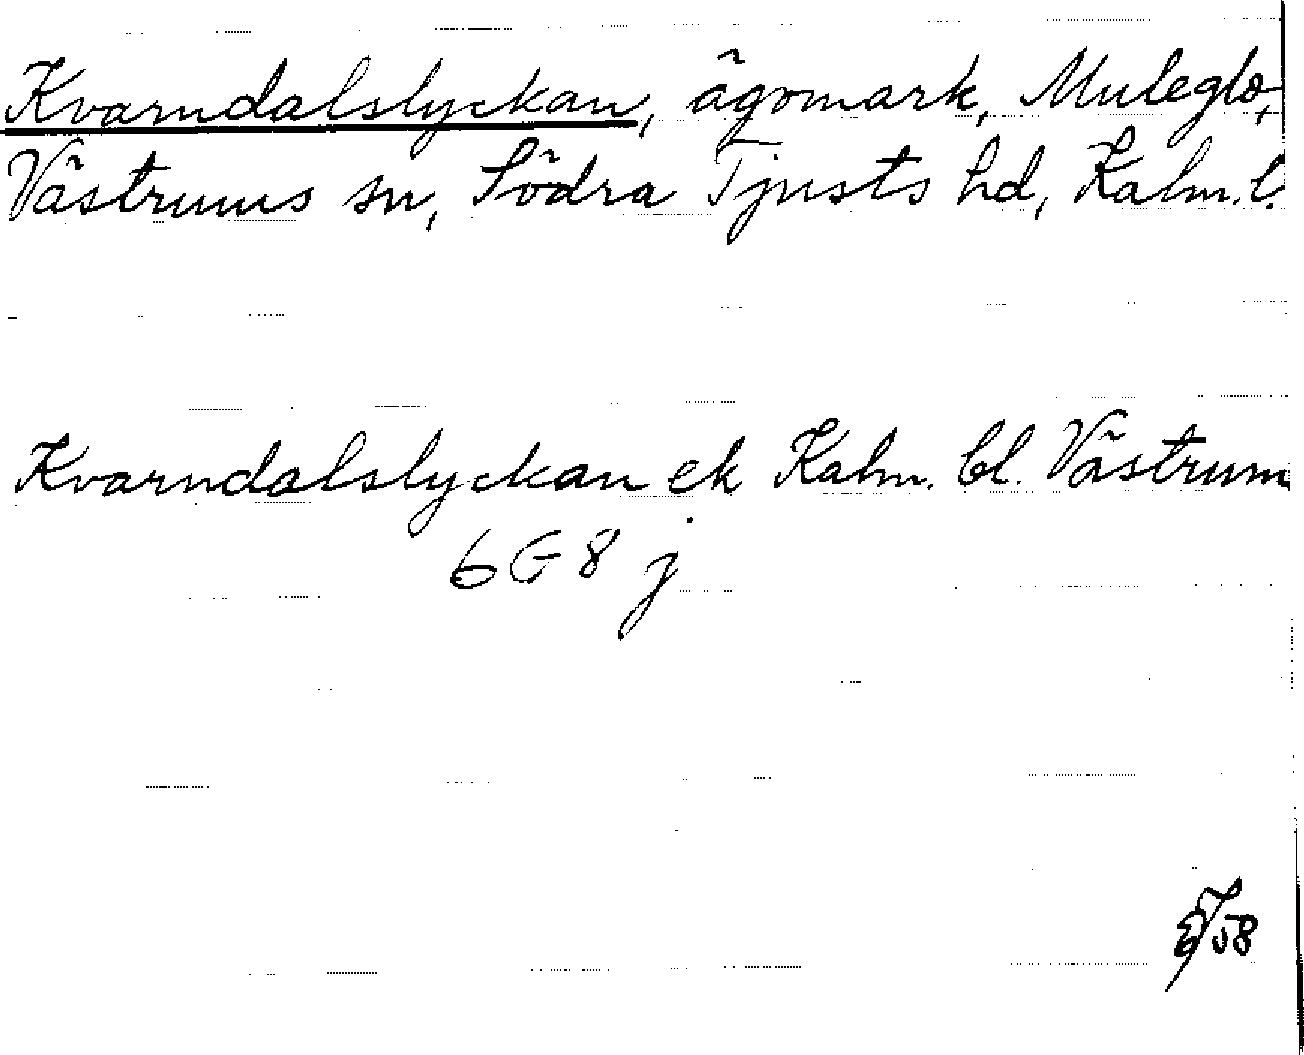 Kvarndalslyckan, ägomark, Muleglo,
Västrums sn, Södra Tjusts hd, Kalm. l.
Kvarndalslyckan ek Kalm. bl. Västrum
6G8j